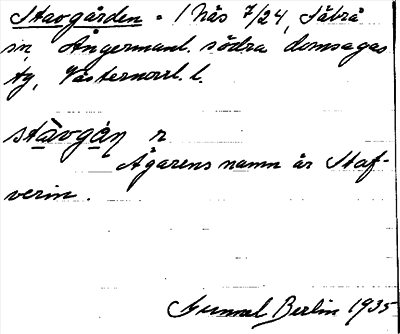 Stavgården = 1 Näs 7/24, Säbrå
sn, Ångermanl. södra domsagas
tg, Västernorrl. l.
stàvgáṇ n
Ägarens namn är Staf-
verin.
Gunnel Berlin 1935